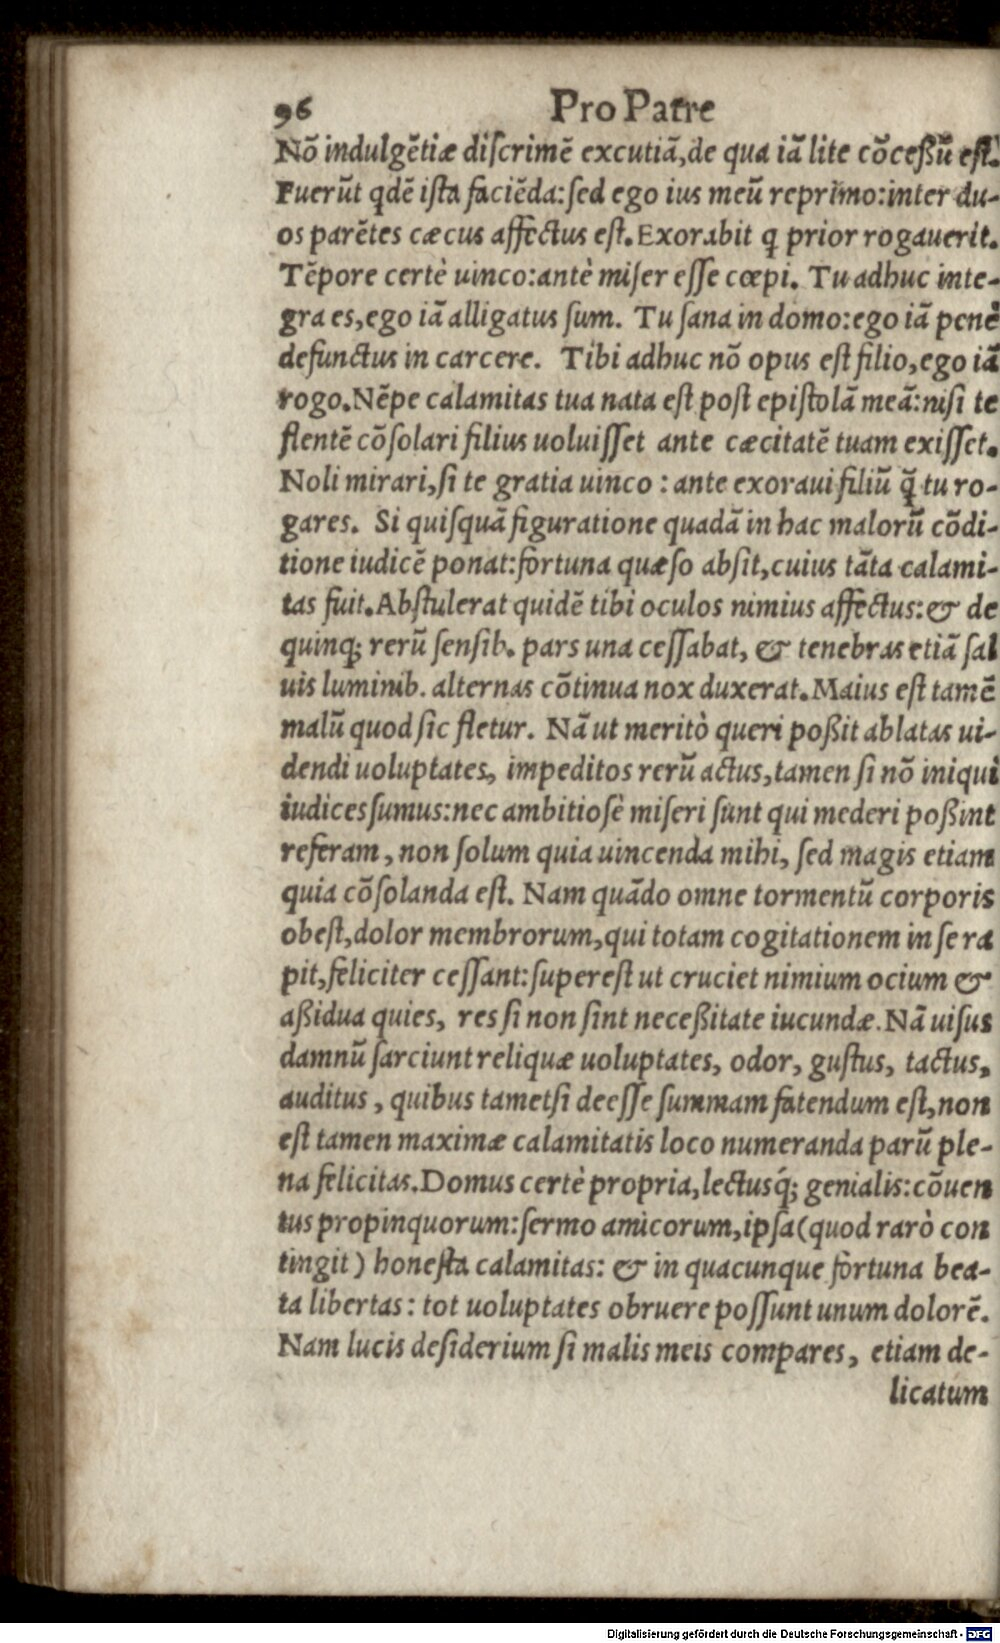 96 Pro Patre
Nō indulgētiæ diſcrimē excutiā, de qua iā lite cōceßū eſt.
Fuerūt qdē iſta faciēda: ſed ego ius meū reprimo: inter du-
os parētes cæcus affectus eſt. Exorabit q prior rogauerit.
Tēpore certè uinco: antè miſer eſſe cœpi. Tu adhuc inte-
gra es, ego iā alligatus ſum. Tu ſana in domo: ego iā penè
defunctus in carcere. Tibi adhuc nō opus eſt filio, ego iā
rogo. Nēpe calamitas tua nata eſt poſt epiſtolā meā: niſi te
flentē cōſolari filius uoluiſſet ante cæcitatē tuam exiſſet.
Noli mirari, ſi te gratia uinco: ante exoraui filiū q̄ tu ro-
gares. Si quiſquā figuratione quadā in hac malorū cōdi-
tione iudicē ponat: fortuna quæſo abſit, cuius tāta calami-
tas fuit. Abſtulerat quidē tibi oculos nimius affectus: & de
quinq; rerū ſenſib. pars una ceſſabat, & tenebras etiā ſal
uis luminib. alternas cōtinua nox duxerat. Maius eſt tamē
malū quod ſic fletur. Nā ut meritò queri poßit ablatas ui-
dendi uoluptates, impeditos rerū actus, tamen ſi nō iniqui
iudices ſumus: nec ambitioſè miſeri ſunt qui mederi poßint
referam, non ſolum quia uincenda mihi, ſed magis etiam
quia cōſolanda eſt. Nam quādo omne tormentū corporis
obeſt, dolor membrorum, qui totam cogitationem in ſe ra
pit, feliciter ceſſant: ſupereſt ut cruciet nimium ocium &
aßidua quies, res ſi non ſint neceßitate iucundæ. Nā uiſus
damnū ſarciunt reliquæ uoluptates, odor, guſtus, tactus,
auditus, quibus tametſi deeſſe ſummam fatendum eſt, non
eſt tamen maximæ calamitatis loco numeranda parū ple-
na felicitas. Domus certè propria, lectusq́; genialis: cōuen
tus propinquorum: ſermo amicorum, ipſa (quod rarò con
tingit) honeſta calamitas: & in quacunque fortuna bea-
ta libertas: tot uoluptates obruere poſſunt unum dolorē.
Nam lucis deſiderium ſi malis meis compares, etiam de-
licatum
Digitalisierung gefördert durch die Deutsche Forschungsgemeinschaft - DFG